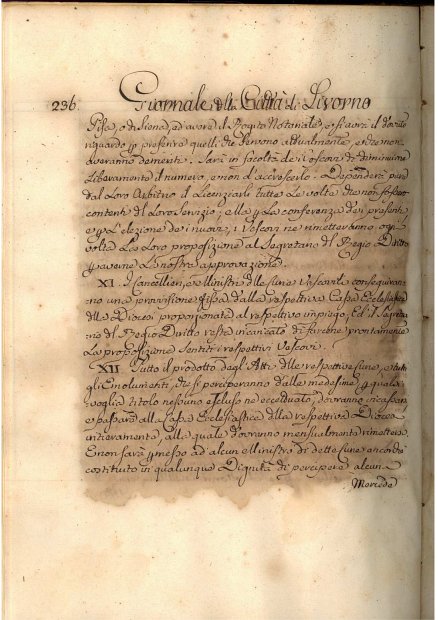 236 Giornale della Città di Livorno
Pisa, o di Siena, ad avere il Rogito Notariale, e si avrà il dovuto
riguardo per preferire quelli che servono attualmente, e che non
averanno demeriti. Sarà in facoltà de Vescovi di diminuirne
liberamente il numero, e non d'accrescerlo. Dependerà pure
dal Loro Arbitrio il Licenziarli tutte Le volte che non fossero
contenti del Loro Servizio; e sì per La conferma dei presenti
e per L'elezione dei nuovi, i Vescovi ne rimetteranno ogni
volta La Loro proposizione al Segretario del Regio Diritto
per averne La nostra approvazione.
XI. I Cancellieri, e Ministri delle Curie Vescovili conseguiranno
no una provvisione fissa dalla respettiva Cassa Ecclesiastica
della Diocesi proporzionata al respettivo impiego; Ed il Segretario
del Regio Diritto resta incaricato di farcene prontamente
La proposizione sentiti i respettivi Vescovi.
XII Tutto il prodotto degli Atti delle respettive Curie, e tutti
gli Emolumenti, che si perciperanno dalle medesime, per qualsi
voglia titolo nessuno escluso ne eccettuato, dovranno incassarsi
e passare alla Cassa Ecclesiastica della respettiva Diocesi
intieramente, alla quale dovranno mensualmente rimettersi.
E non sarà permesso ad alcun Ministro di dette Curie ancorchè
costituito in qualunque Dignità di percipere alcuna
Mercede